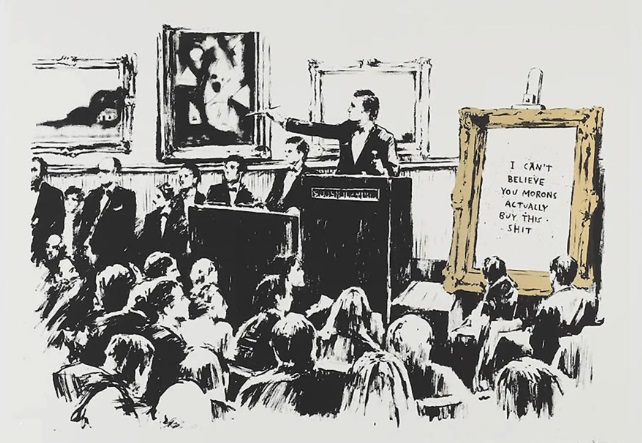 I CAN'T
BELIEVE
YOU MORONS
ACTUALLY
BUY THIS
SHIT